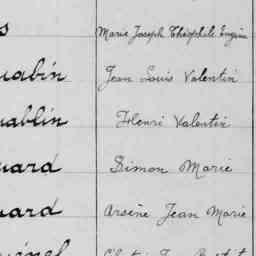 s Marie Joseph Théophile Eugène
uabin Jean Louis Valentin
uablin Henri Valentin
uard Simon Marie
uard Arsène Jean Marie